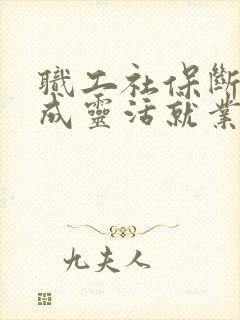 職工社保斷
成靈活就業
九夫人